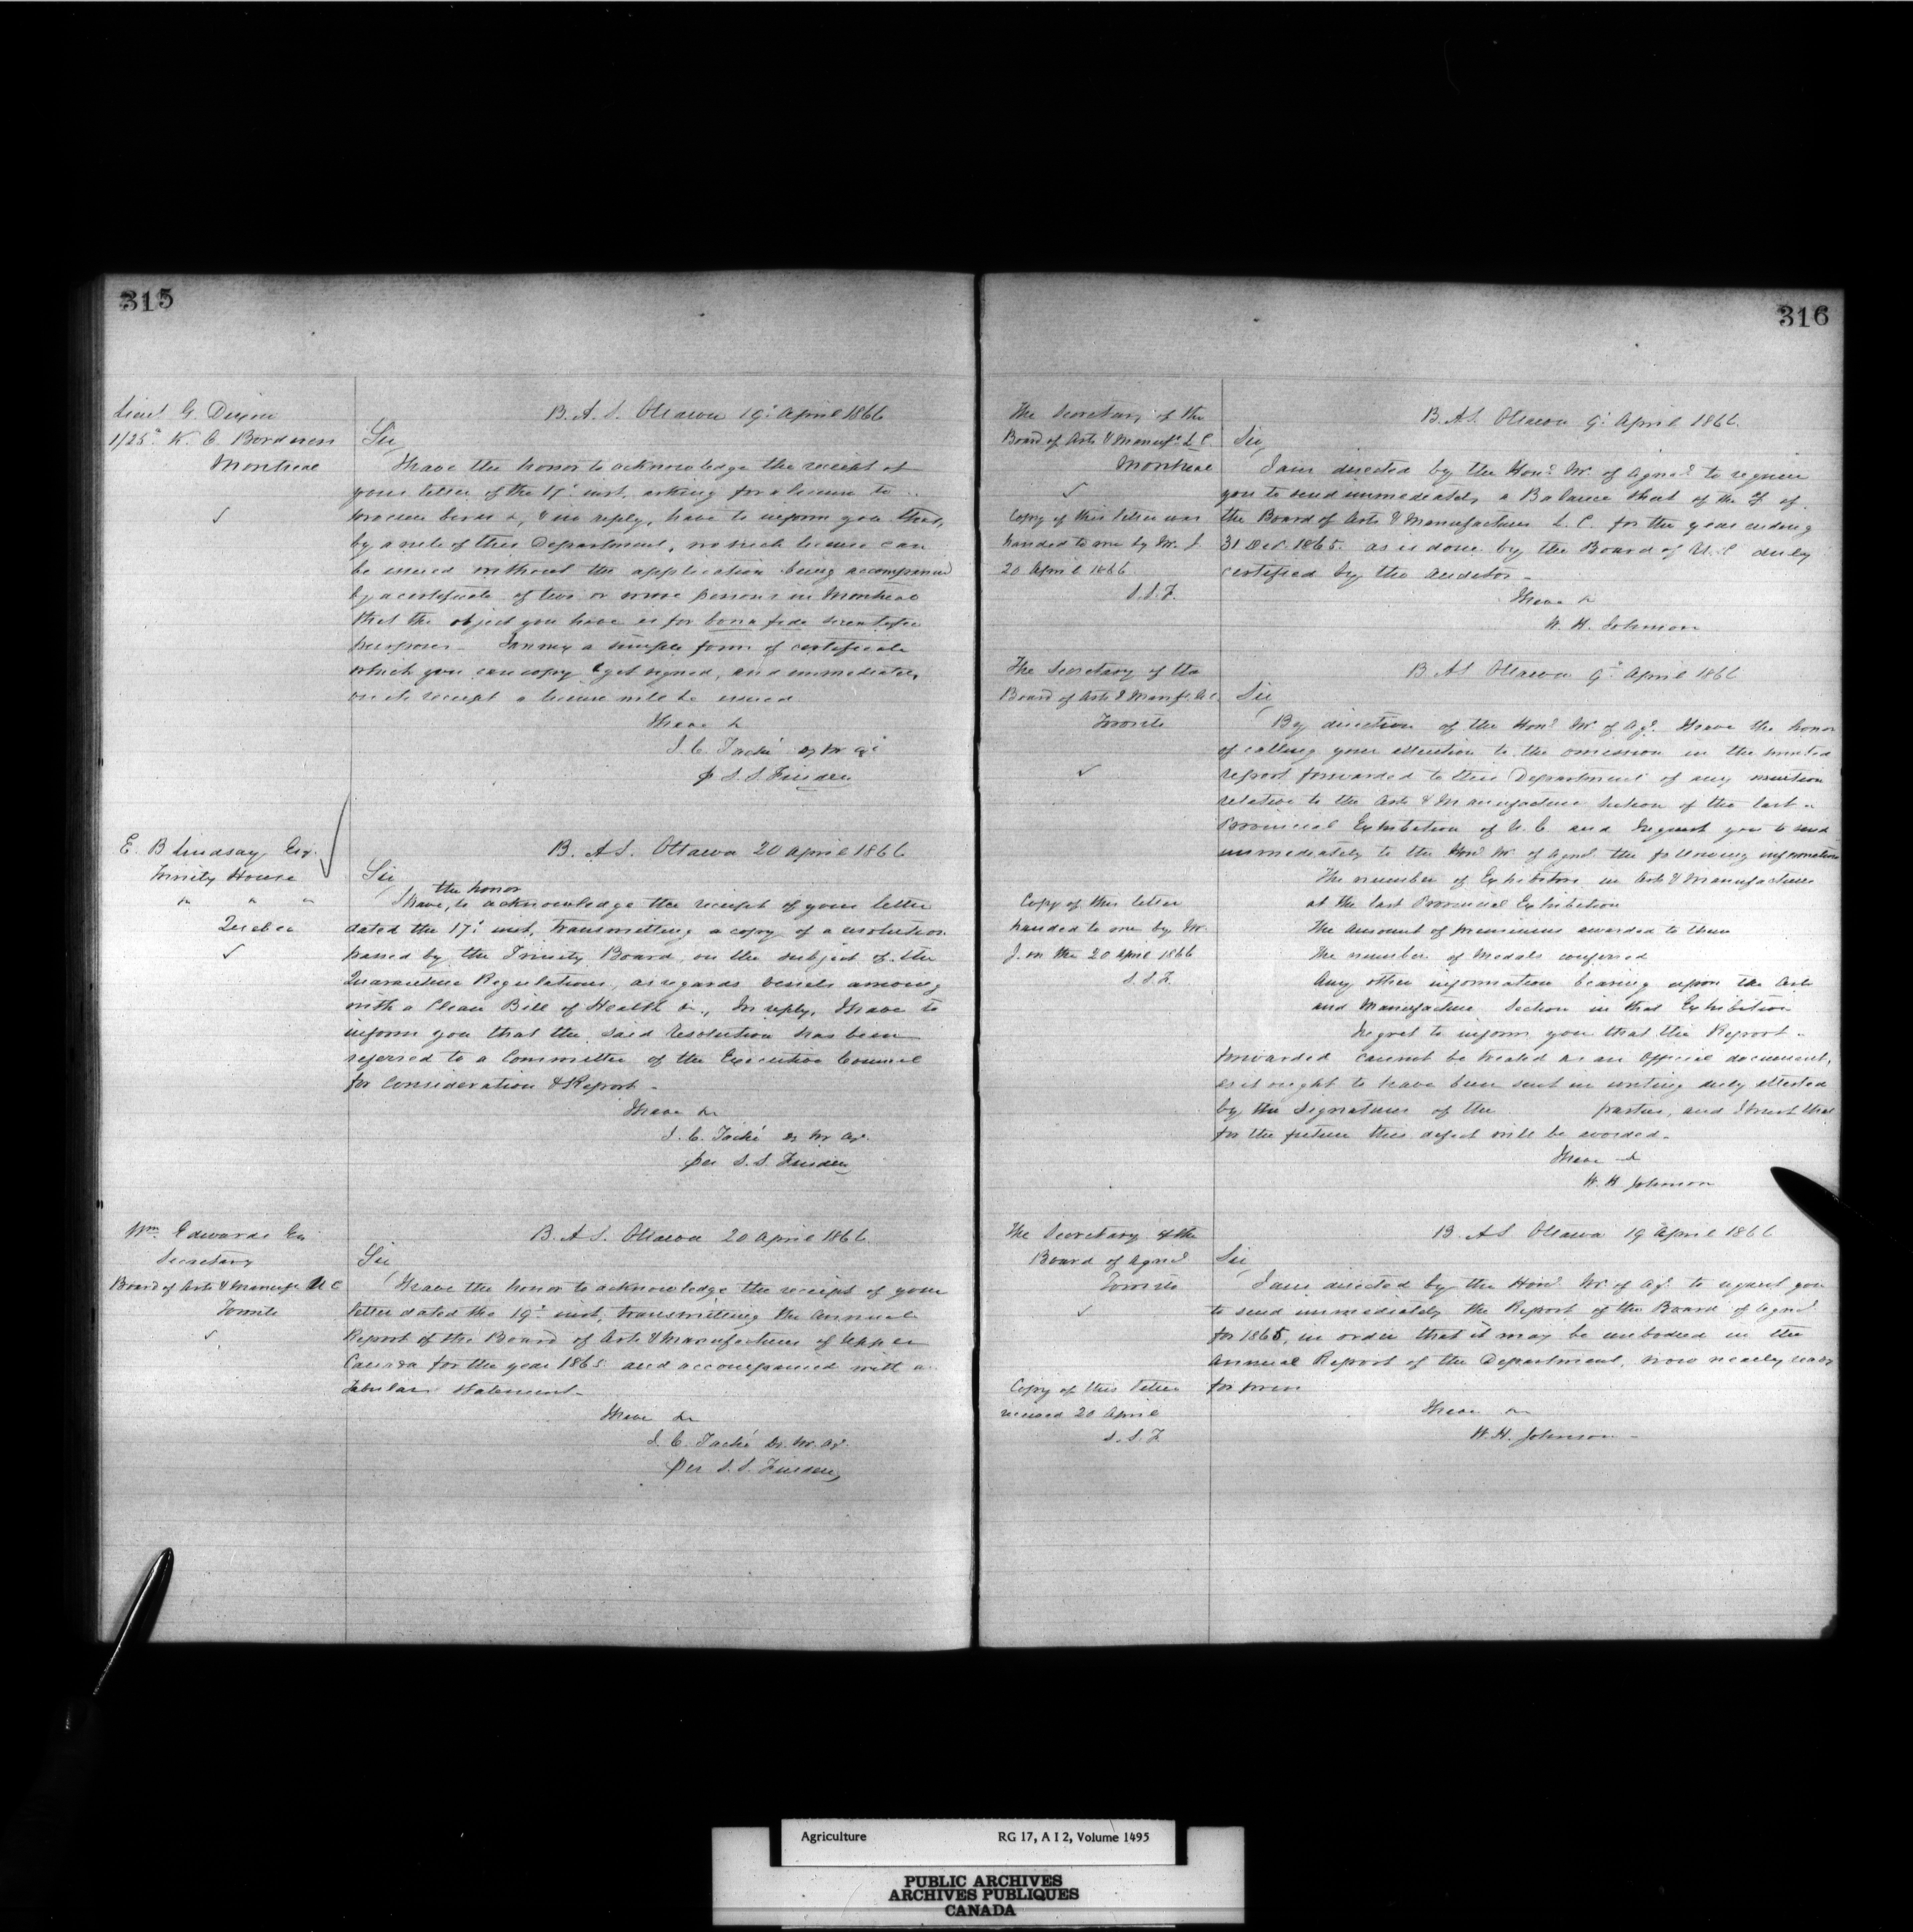 315
Lieut G. Dixon
1/25th K. O. Borderers
Montreal
✓
B. A. S. Ottawa 19th April 1866
Sir
I have the honor to acknowledge the receipt of
your letter of the 17th inst. asking for a license to
procure birds &c, & in reply, have to inform you that,
by a rule of this Department, no such license can
be issued without the application being accompanied
by a certificate of two or more persons in Montreal
that the object you have is for bona fide scientific
purposes. I annex a simple form of certificate
which you can copy & get signed, and immediately
on its receipt a license will be issued.
I have &
J. C. Taché Dy Mr Agr
pr S. S. Finden
E. B Lindsay Esq.
Trinity House
" " "
Quebec
✓
B. A S. Ottawa 20 April 1866
Sir
the honor
I have, to acknowledge the receipt of your letter
dated the 17th inst, transmitting a copy of a resolution
passed by the Trinity Board, on the subject of the
Quarantine Regulations, as regards vessels arriving
with a Clean Bill of Health &c., In reply, I have to
inform you that the said Resolution has been
referred to a Committee of the Executive Council
for consideration & Report -
I have &c
J. C. Taché Dy Mr Agr.
per S. S. Finden
Wm. Edwards Esq
Secretary
Board of Arts & Manufs U C
Toronto
✓
B. A S. Ottawa 20 April 1866.
Sir
I have the honor to acknowledge the receipt of your
letter dated the 19th inst, transmitting the Annual
Report of the Board of Arts & Manufactures of Upper
Canada for the year 1865 and accompanied with a
Tabular Statement -
I have &c
J. C. Taché Dy. Mr. Agr.
per S. S. Finden
316
The Secretary of the
Board of Arts & Manufs L. C.
Montreal
✓
Copy of this letter was
handed to me by Mr J.
20 April 1866
S. S. F.
B. A S. Ottawa 9th April 1866.
Sir
I am directed by the Honl Mr of Agrel to require
you to send immediately a Balance Sheet of the of
the Board of Arts & Manufactures L. C. for the year ending
31 Dec. 1865. as is done by the Board of U. C. duly
certified by the auditor -
I have &
W. H. Johnson
The Secretary of the
Board of Arts & Manfs U. C.
Toronto
✓
B. A S Ottawa 9th April 1866
Sir
By direction of the Honl Mr of Agr. I have the honor
of calling your attention to the omission in the printed
report forwarded to this Department of any mention
relative to the Arts & Manufacture Section of the last
Provincial Exhibition of U. C and request you to send
immediately to the Honl Mr of Agrel the following information
The number of Exhibitors in Arts & Manufactures
at the last Provincial Exhibition
The Amount of premiums awarded to them
The number of Medals conferred
Any other information bearing upon the Arts
and Manufacture Section in that Exhibition
Copy of this letter
handed to me by Mr.
J. on the 20 April 1866
S. S. F.
I regret to inform you that the Report
forwarded cannot be treated as an Official document,
as it ought to have been sent in writing duly attested
by the Signatures of the parties, and I trust that
for the future this defect will be avoided.
I have &
W. H Johnson
The Secretary of the
Board of Agrel
Toronto
✓
B. A S Ottawa 19 April 1866
Sir
I am directed by the Honl Mr of Agr to request you
to send immediately the Report of the Board of Agrel
for 1865, in order that it may be embodied in the
Annual Report of the Department, now nearly ready
for press
Copy of this letter
received 20 April
S. S. F
I have &c
W. H. Johnson -
Agriculture RG 17, A I 2, Volume 1495
PUBLIC ARCHIVES
ARCHIVES PUBLIQUES
CANADA